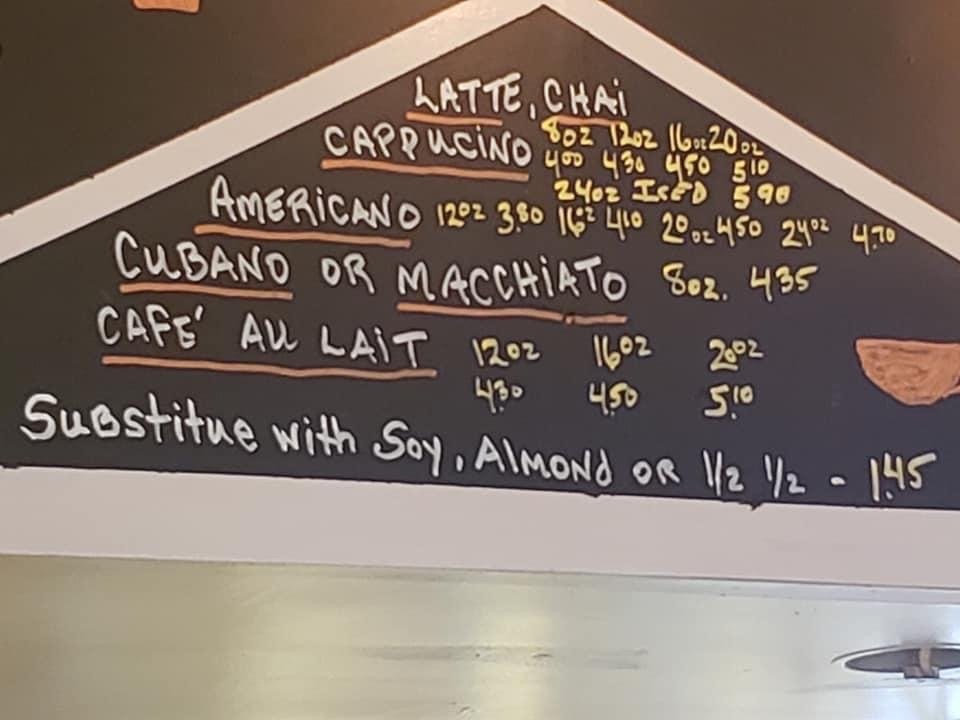 LATTE, CHAi
CAPPUCiNO 8oz 12oz 16oz 20oz
400 430 450 510
24oz IcED 590
AMERiCANO 12oz 3.80 16oz 4.10 20oz 4.50 24oz 4.70
CUBANO OR MACCHiATO 8oz. 435
CAFE' AU LAiT 12oz 16oz 20oz
4.30 4.50 5.10
Substitue with Soy, AlMOND OR 1/2 1/2 - 1.45